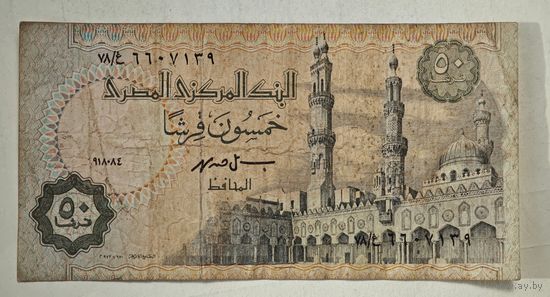 ٧٨/ع ٦٦٠٧١٣٩
٥٠
البنك المركزى المصرى
خمسون قرشًا
٩١٨٠٨٤
المحافظ
٥٠
قرشا
٧٨/ع ٦٦٠٧١٣٩